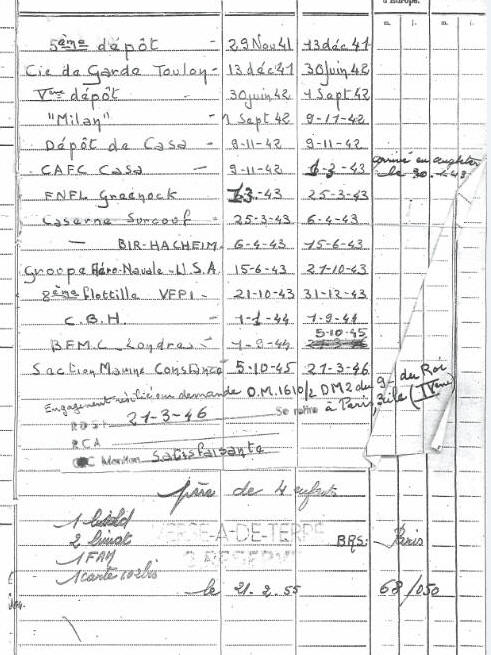 d'Europe.
a. j. a. j.
5ème dépôt - 29 Nov 41 13 déc 41
Cie de Garde Toulon - 13 déc 41 30 juin 42
Vème dépôt - 30 juin 42 1 Sept 42
"Milan" - 1 Sept 42 9-11-42
Dépôt de Casa - 9-11-42 9-11-42
CAFC Casa - 9-11-42 6-3-43 arrivé en
le 30
FNFL Greenock -43 25-3-43
Caserne Surcouf - 25-3-43 6-4-43
- BIR-HACHEIM - 6-4-43 15-6-43
Groupe Aéro-Navale - U.S.A 15-6-43 21-10-43
8ème flottille VFP1 - 21-10-43 31-12-43
C.B.H. - 1-1-44 1-9-44
5-10-45
B.F.M.C. Londres - 1-9-44
Section Marine Constance 5-10-45 21-3-46
Engagement résilié sur demande D.M. 1610/2 DM2 du
21-3-46 Se retire à Paris, du Roi
RCA (IVème)
Mention Satisfaisante
père de 4 enfants
1
2
1 FAM
1 carte
VERSE-A-DE-TERRE
BRS: Paris
le 21.2.55 68/050